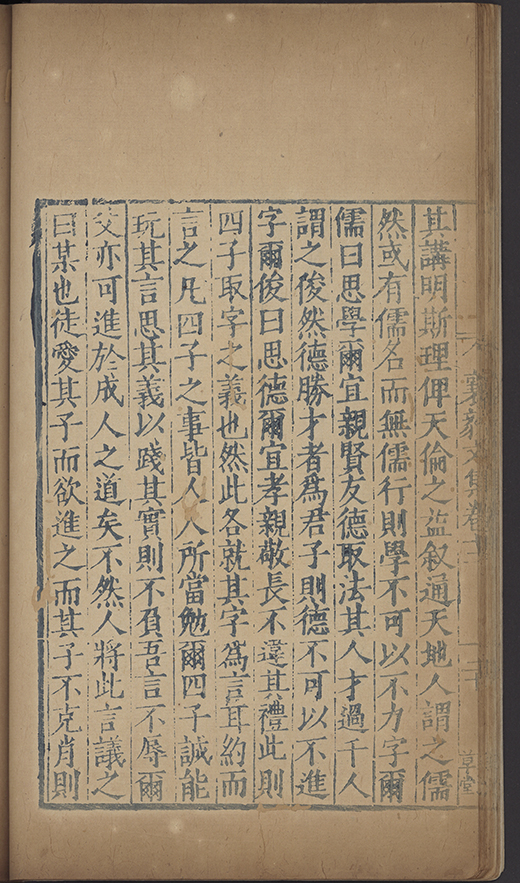 其講明斯理俾天倫之益敘通天地人謂之儒
然或有儒名而無儒行則學不可以不力字爾
儒曰思學爾宜親賢友德取法其人才過千人
謂之俊然德勝才者為君子則德不可以不進
字爾俊曰思德爾宜孝親敬長不違其禮此則
四子取字之義也然此各就其字為言耳約而
言之凡四子之事皆人人所當勉爾四子誠能
玩其言思其義以踐其實則不負吾言不辱爾
父亦可進於成人之道矣不然人將此言議之
曰某也徒愛其子而欲進之而其子不克肖則
襄毅文集卷
草堂